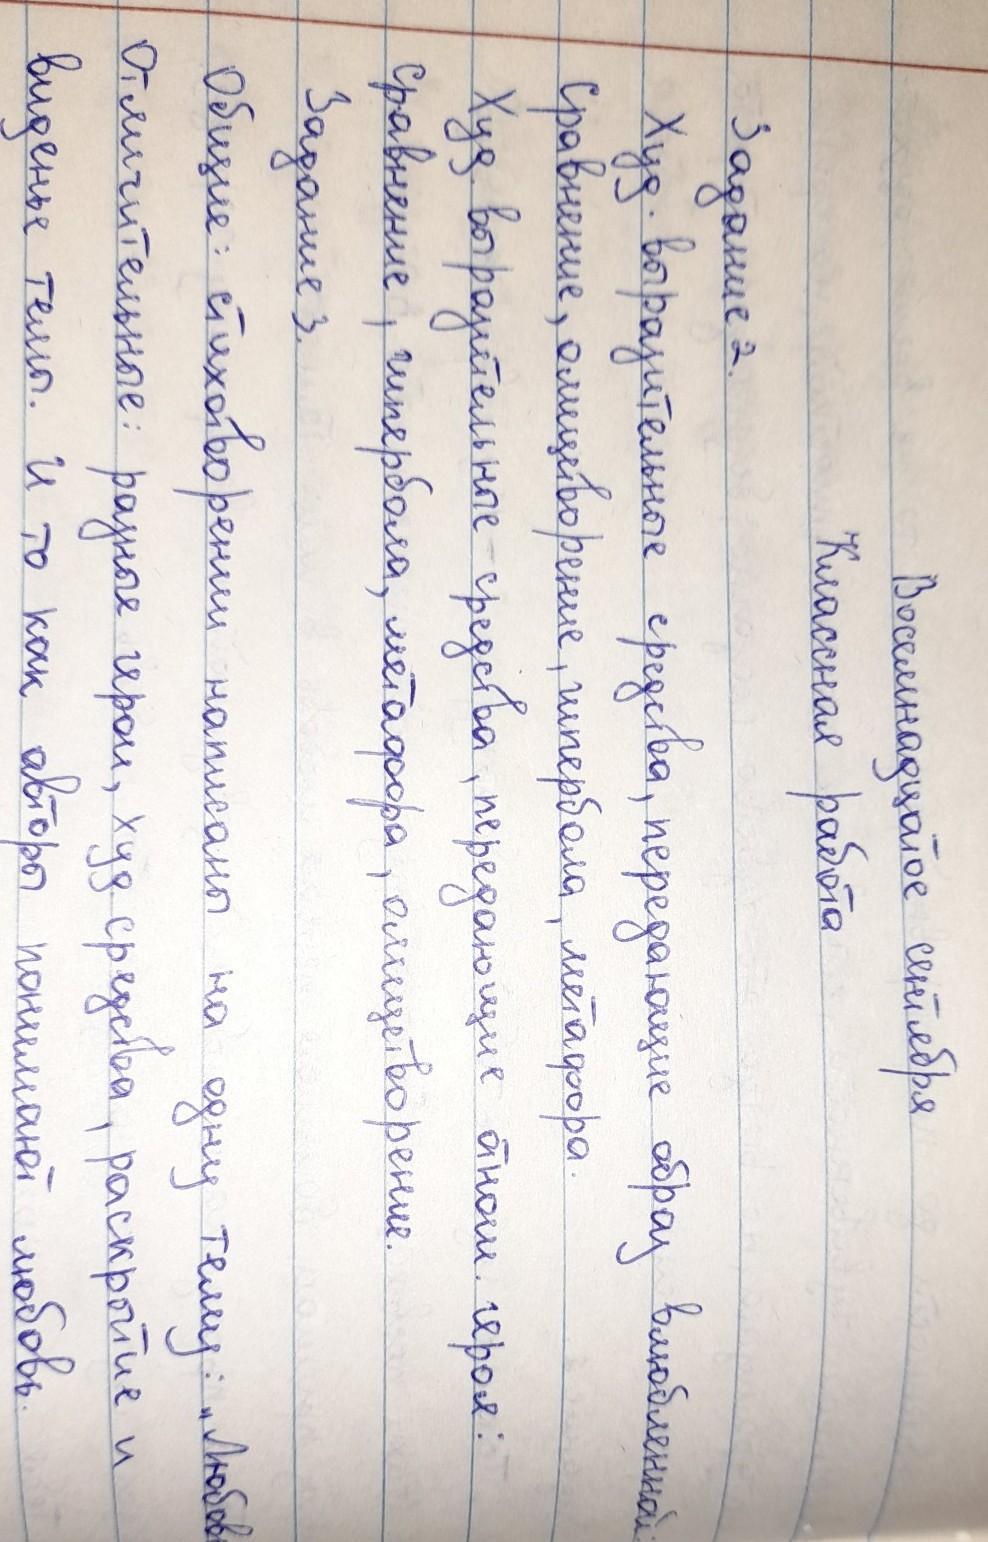 Восемнадцатое сентября
Классная работа
Задание 2.
Худ. выразительные средства, передающие образ влюбленной:
Сравнение, олицетворение, гипербола, метафора.
Худ. выразительные средства, передающие отнош. героя:
сравнение, гипербола, метафора, олицетворение.
Задание 3.
Общие: стихотворении написаны на одну тему: "Любовь
Отличительные: разные герои, худ средства, раскрытие и
виденье темы. И то как авторы понимают любовь.